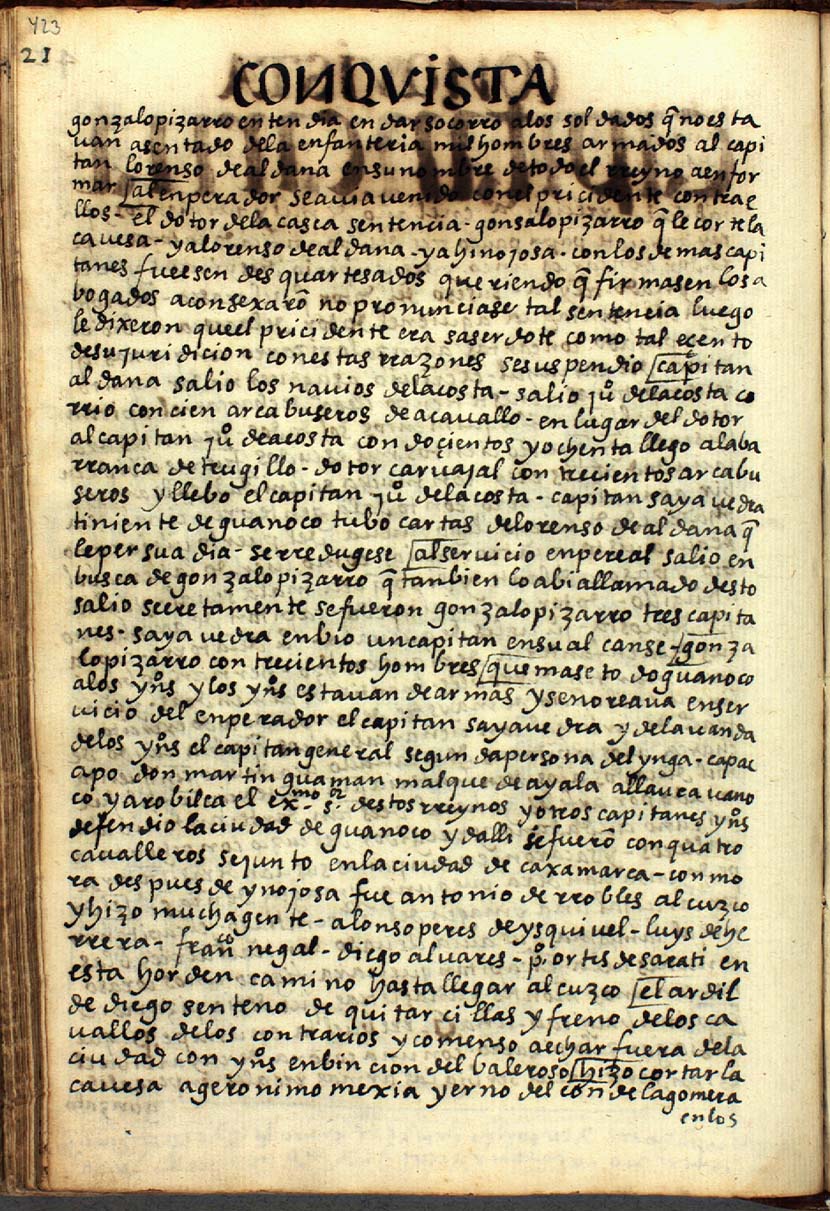 423
21
CONQVISTA
gonzalo pizarro entendia en dar socorro a los soldados q̃ no esta
uan asentado de la enfanteria mis hombres armados al capi
tan lorenso de aldana en su nombre de todo el rreyno a enfor
mar al enperador se auia uenido con el pricidente contra e
llos - el dotor de la casca sentencia - gonsalo pizarro q̃ le corte la
cauesa - y a lorenso de aldana - y a hinojosa - con los demas capi
tanes fuesen desquartesados queriendo q̃ firmasen los a
bogados aconsexarõ no pronunciase tal sentencia luego
le dixeron que el pricidente era saserdote como tal ecento
de su juridicion con estas rrazones se suspendio capitan
aldana salio los nauios de la costa - salio juº de la costa co
rrio con cien arcabuseros de a cauallo - en lugar del dotor
al capitan juº de acosta con docientos y ochenta llego a la ba
rranca de trugillo - dotor caruajal con trecientos arcabu
seros y llebo el capitan juº de la costa - capitan sayauedra
tiniente de guanoco tubo cartas de lorenso de aldana q̃
le persuadia - se rredugese al seruicio enpereal salio en
busca de gonzalo pizarro q̃ tanbien lo abia llamado desto
salio secretamente se fueron gonzalo pizarro tres capita
nes - sayauedra enbio un capitan en su alcanse - gonza
lo pizarro con trecientos hombres que mase todo guanoco
a los yn̊s y los yn̊s estauan de armas y senoreaua en ser
uicio del enperador el capitan sayauedra y de la uanda
de los yn̊s el capitan general segunda persona del ynga - capac
apo don martin guaman malque de ayala allauca uano
co yarobilca el exmo sor destos rreynos y otros capitanes yn̊s
defendio la ciudad de guanoco y dalli se fuerõ con quatro
caualleros se junto en la ciudad de caxamarca - con mo
ra despues de ynojosa fue antonio de rrobles al cuzco
y hizo mucha gente - alonso peres de ysquiuel - luys de he
rrera - franco negal - diego aluares - pº ortis de sarati en
esta horden camino hasta llegar al cuzco el ardil
de diego senteno de quitar cillas y freno de los ca
uallos de los contrarios y comenso a echar fuera de la
ciudad con yn̊s enbincion del baleroso hizo cortar la
cauesa a geronimo mexia yerno del conde la gomera
en los